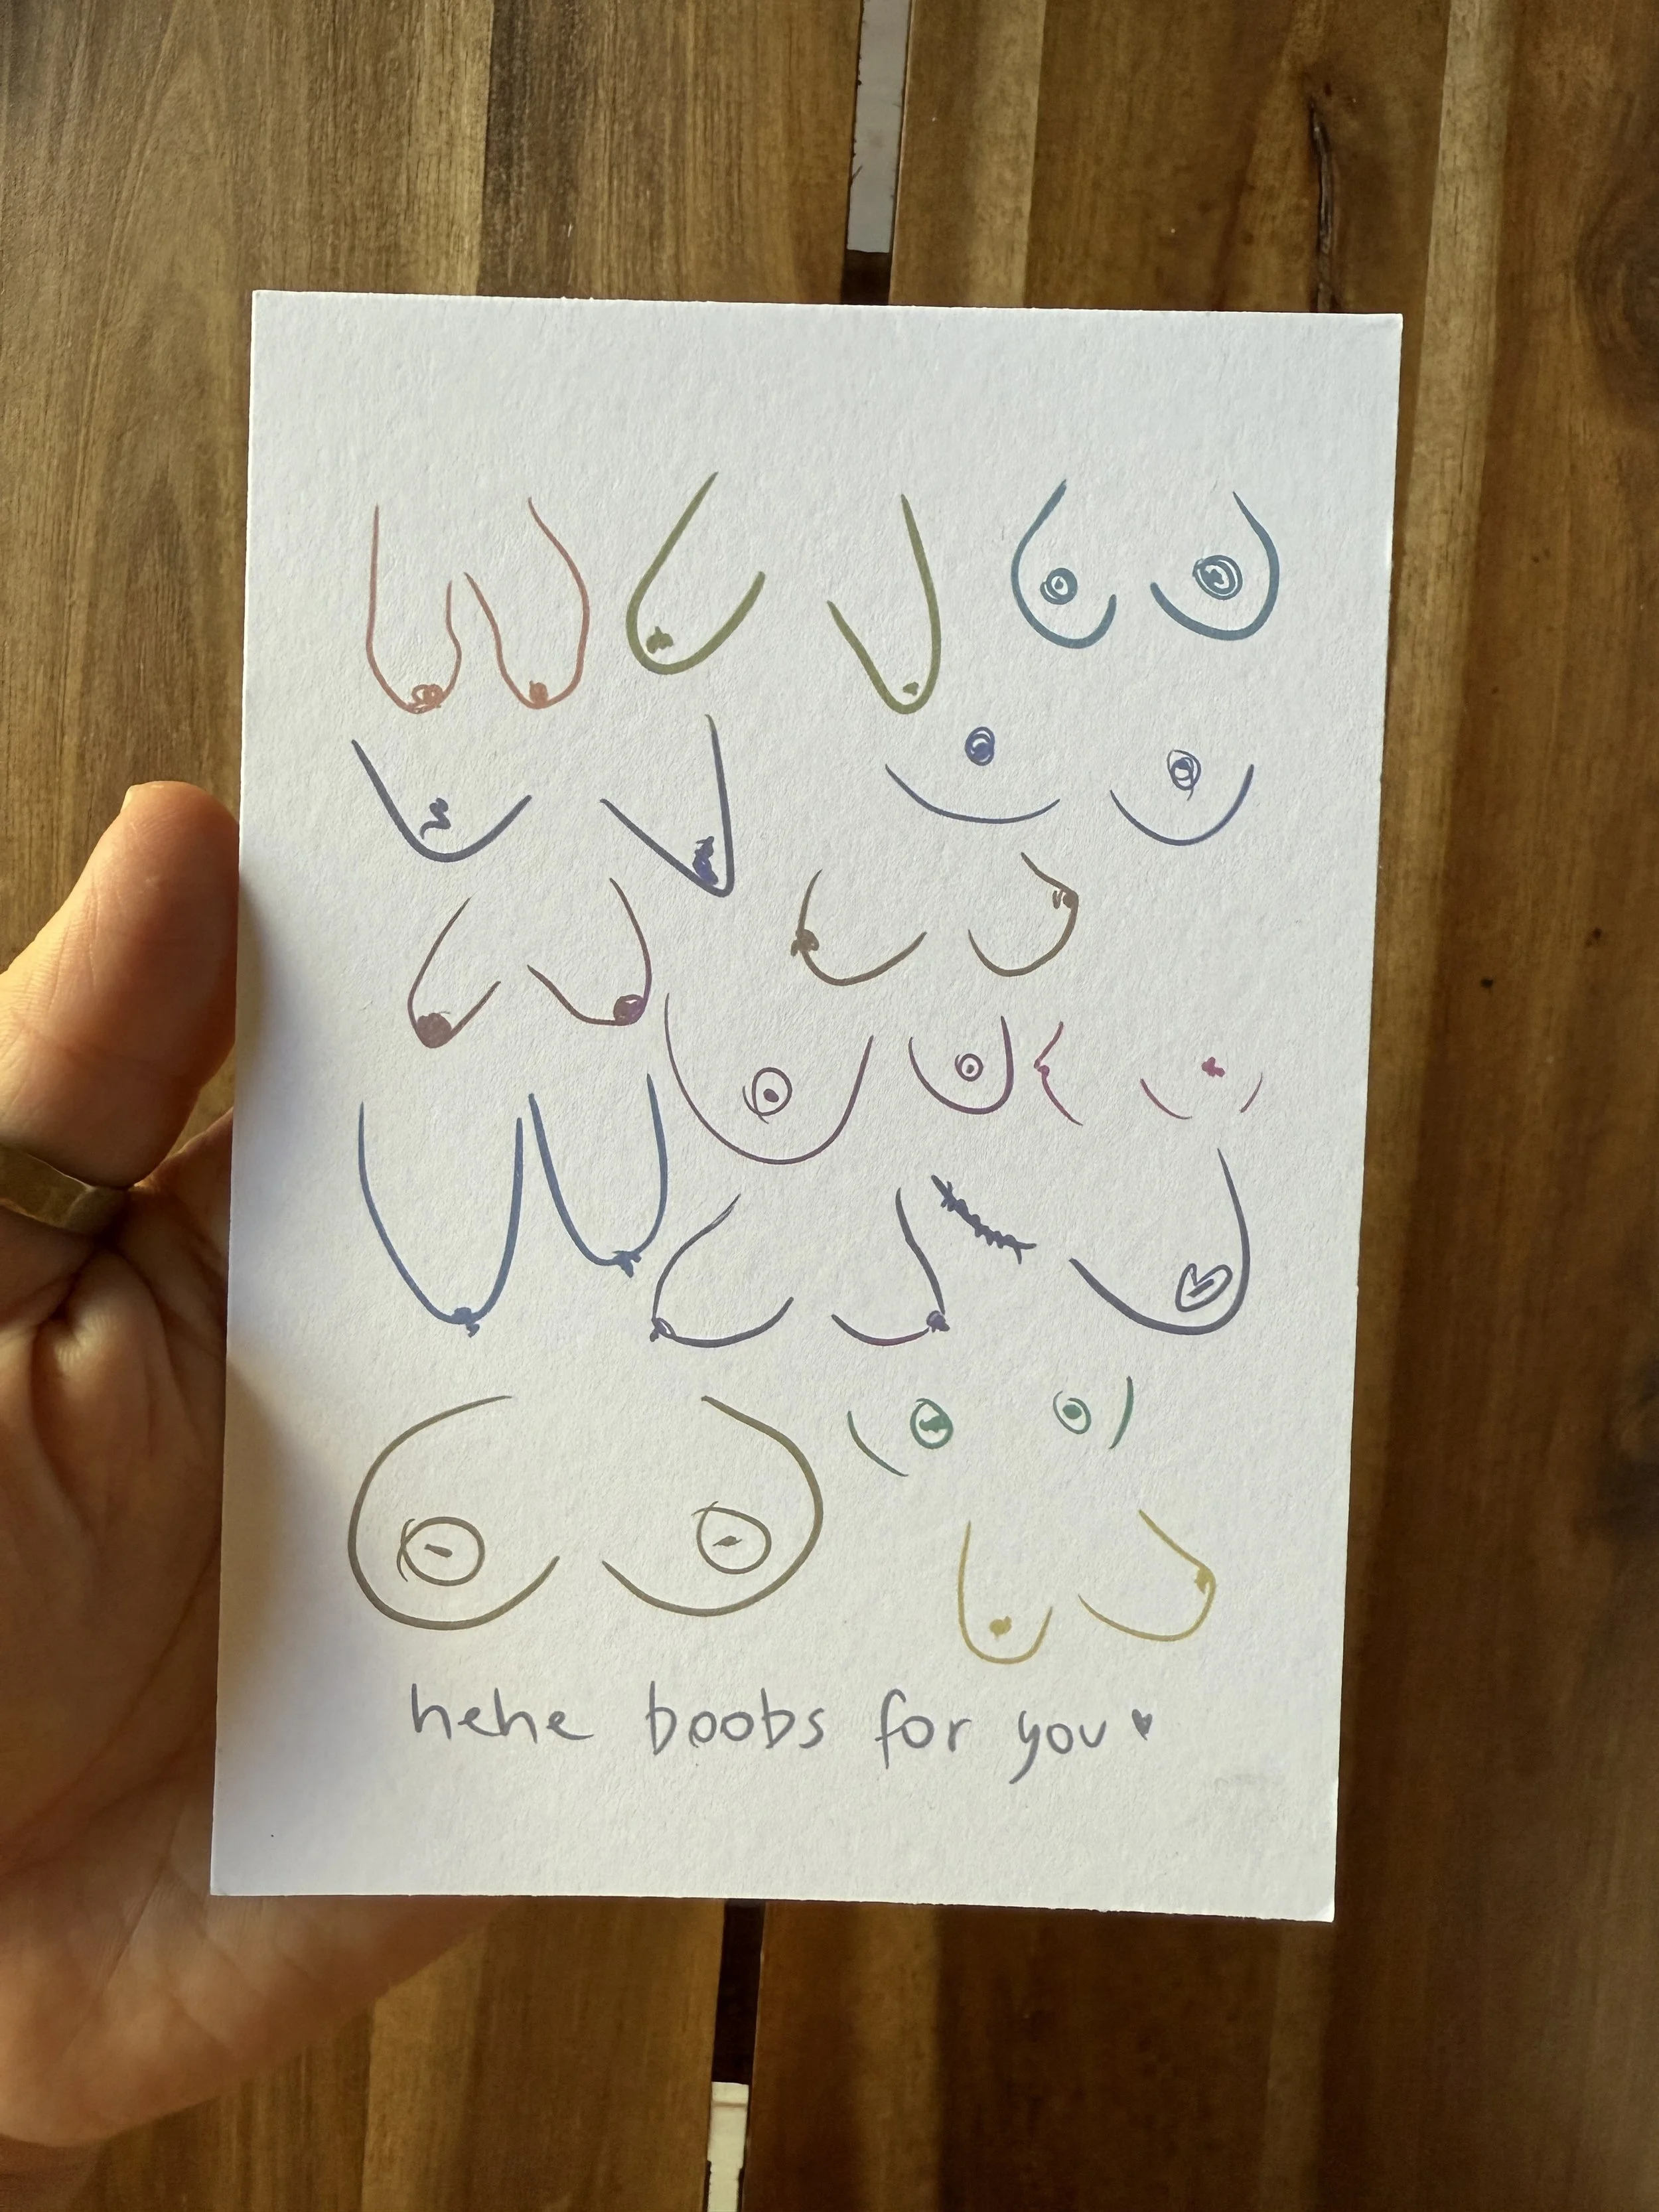 hehe boobs for you ♥